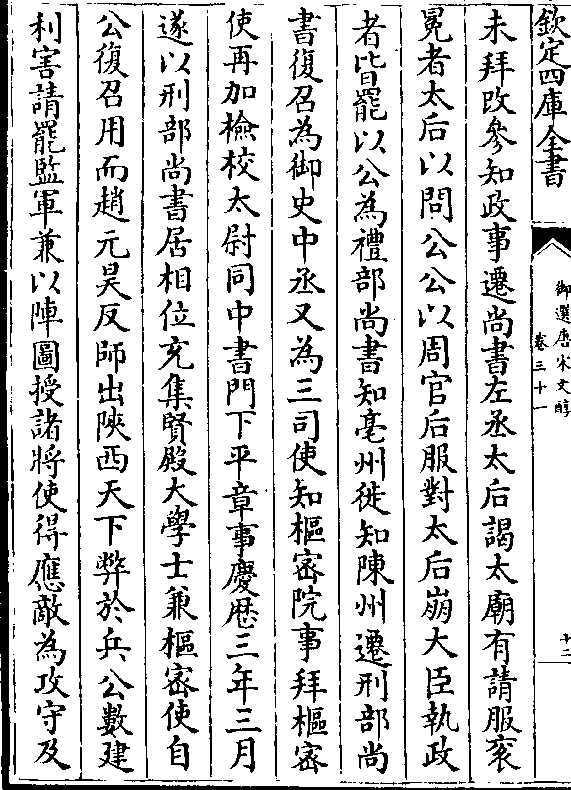 欽定四庫全書
御選唐宋文醇
卷三十一
十二
未拜改參知政事遷尚書左丞太后謁太廟有請服衮
冕者太后以問公公以周官后服對太后崩大臣執政
者皆罷以公為禮部尚書知亳州徙知陳州遷刑部尚
書復召為御史中丞又為三司使知樞密院事拜樞密
使再加檢校太尉同中書門下平章事慶厯三年三月
遂以刑部尚書居相位充集賢殿大學士兼樞密使自
公復召用而趙元昊反師出陜西天下弊於兵公數建
利害請罷監軍兼以陣圖授諸將使得應敵為攻守及